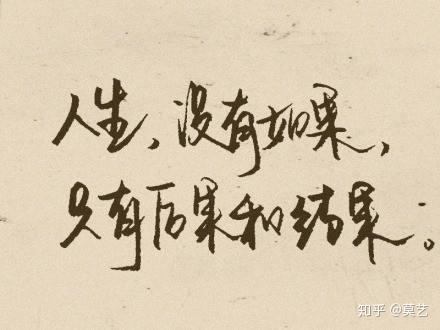 人生,没有如果,
只有后果和结果。
知乎 @莫艺